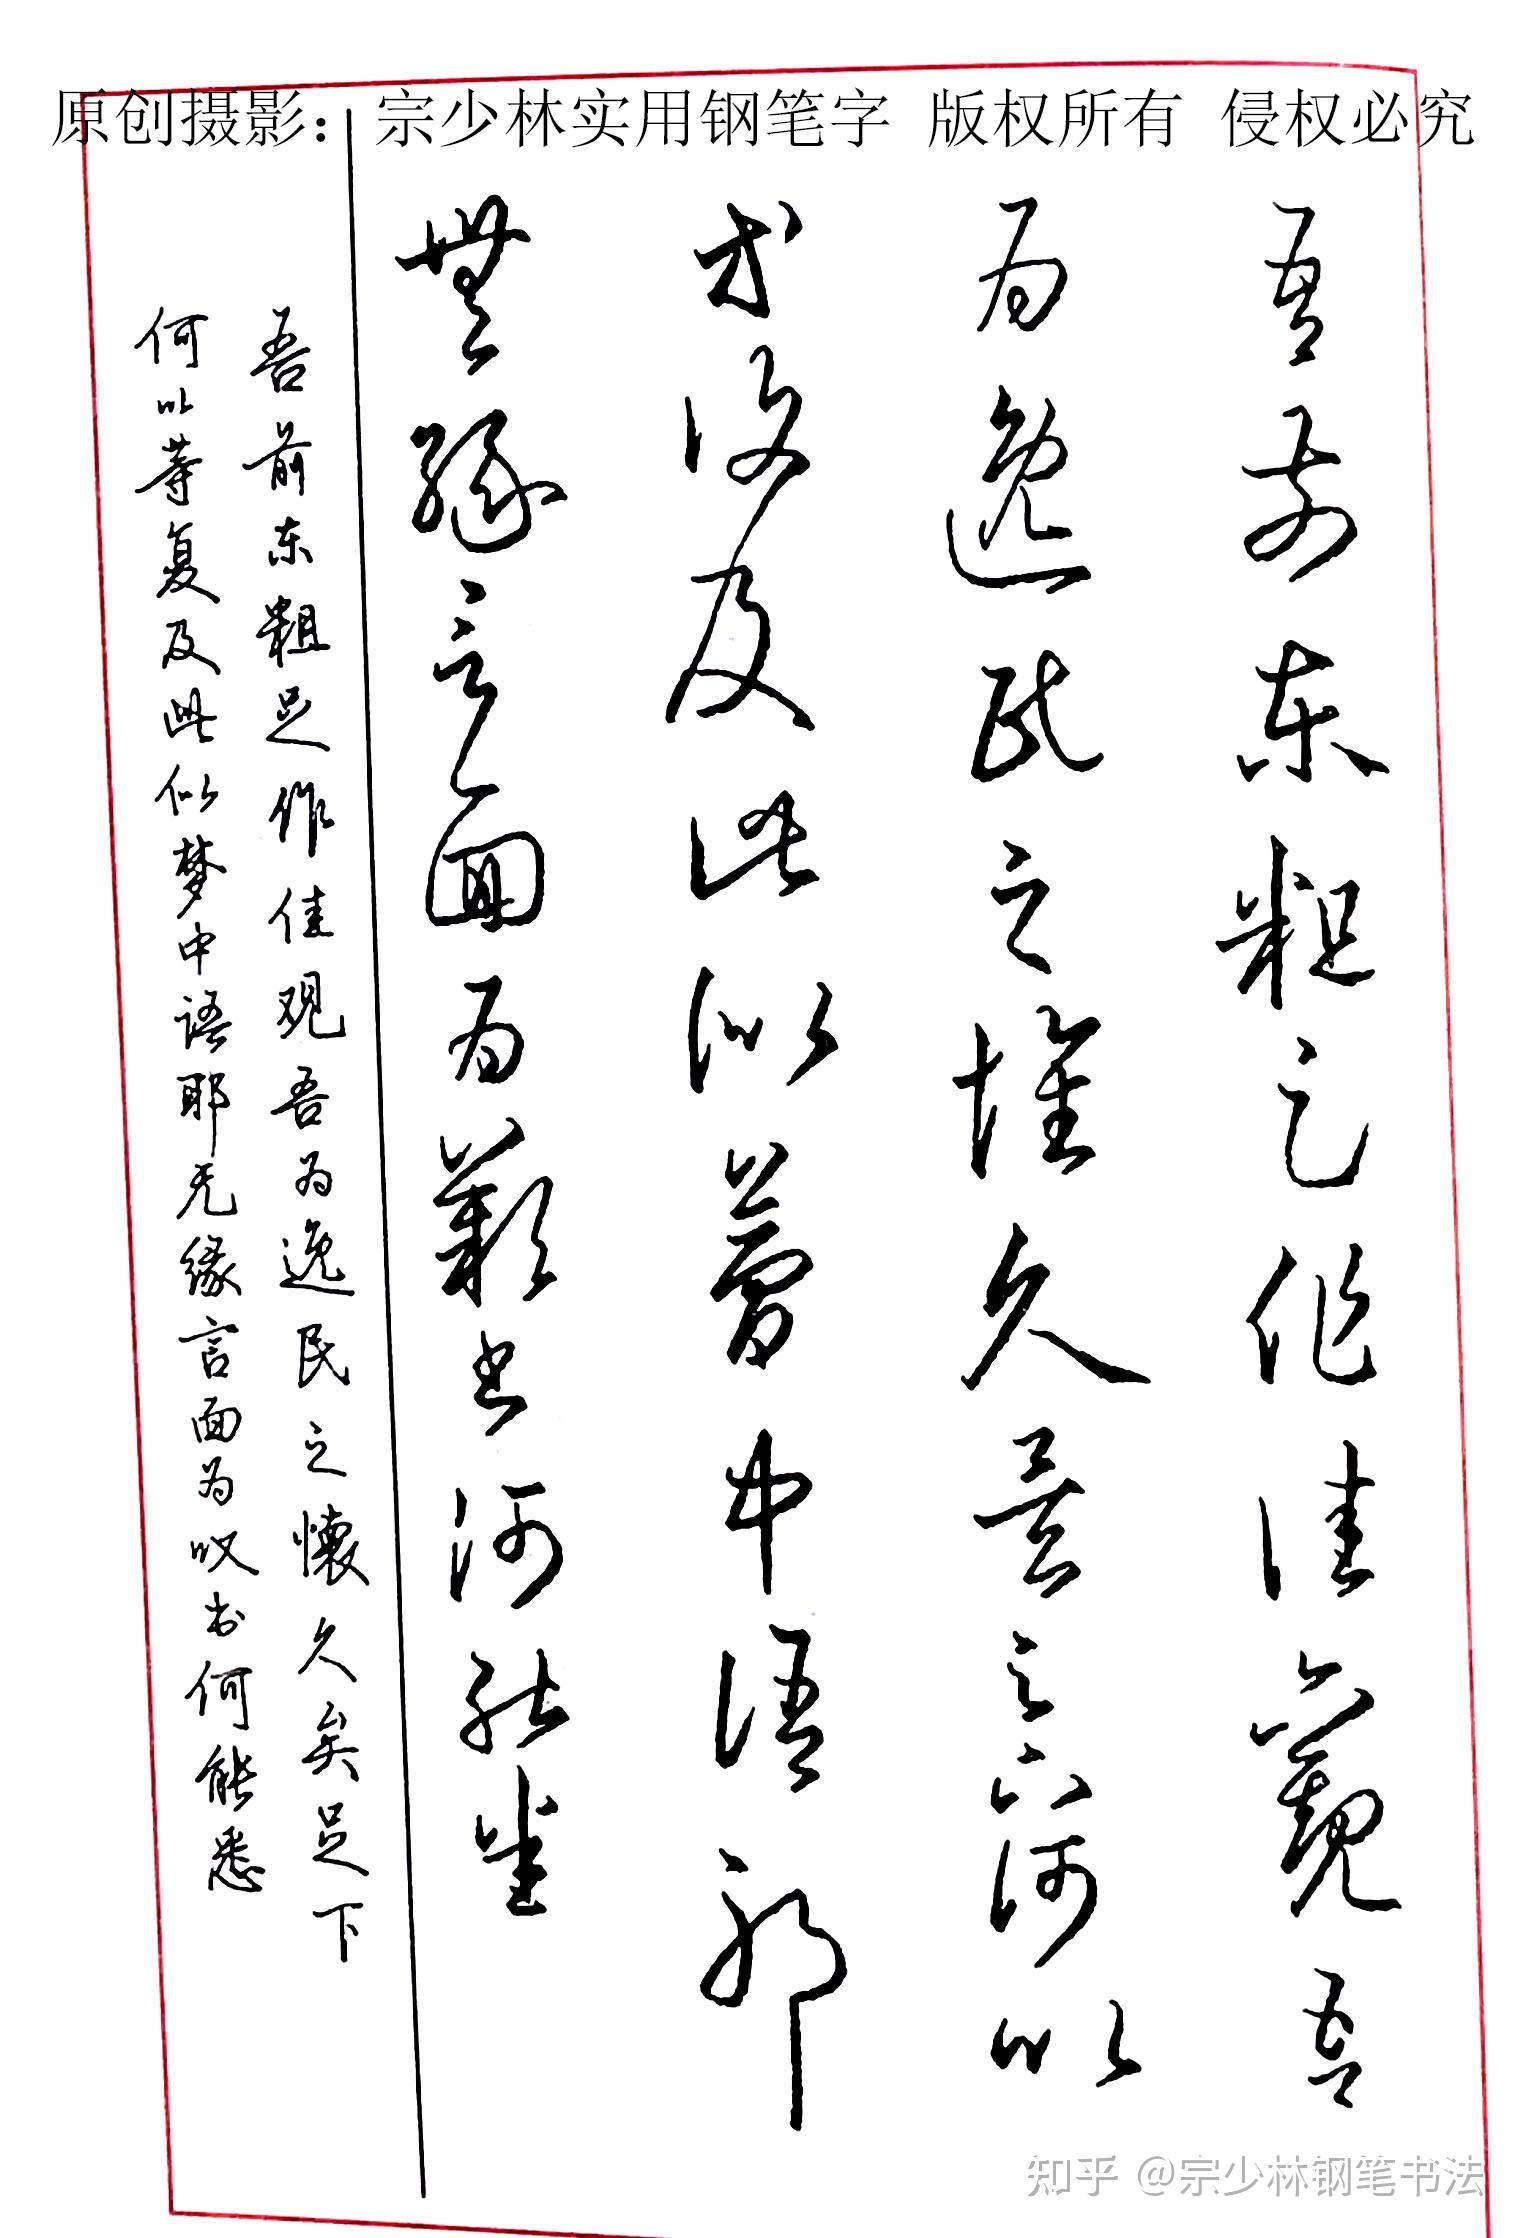 原创摄影：宗少林实用钢笔字 版权所有 侵权必究
吾前東粗足作佳觀吾
为逸民之懷久矣足下何以
等復及此似夢中語耶
無緣言面为歎书何能悉
吾前东粗足作佳观吾为逸民之懷久矣足下
何以等复及此似梦中语耶无缘言面为叹书何能悉
知乎 @宗少林钢笔书法